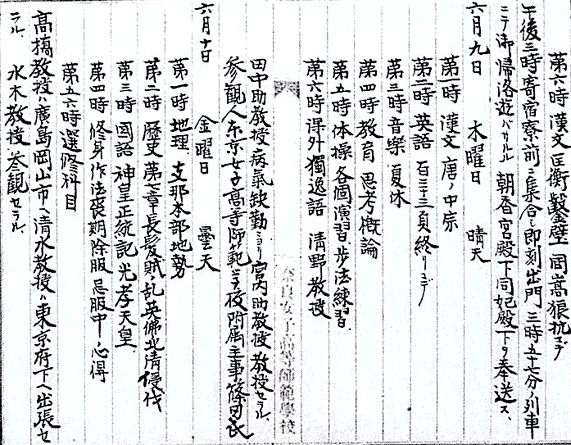 第六時 漢文 匡衡鑿壁 周嵩狼抗マデ
午後三時寄宿寮前ニ集合シ即刻出門 三時五十七分ノ列車
ニテ御帰洛遊バサルル 朝香宮殿下同妃殿下ヲ奉送ス、
六月九日 木曜日 晴天
第一時 漢文 唐ノ中宗
第二時 英語 百三十三頁終リマデ
第三時 音樂 夏休
第四時 教育 思考概論
第五時 体操 各個演習 歩法練習.
第六時 課外 獨逸語 清野教授
奈良女子高等師範學校
田中助教授病氣缺勤ニヨリ宮内助教授 教授セラル、
参観人 東京女子高等師範ニテ後附属主事篠田氏
六月十日 金曜日 曇天
第一時 地理. 支那本部地勢
第二時 歴史 第七章長髪賊ノ乱英佛北清侵伐
第三時 國語 神皇正統記 光孝天皇.
第四時 修身作法 喪期除服 忌服中ノ心得
第五六時 選修科目
高橋教授ハ廣島岡山市ヘ清水教授ハ東京府下ヘ出張セ
ラル. 水木教授参観セラル